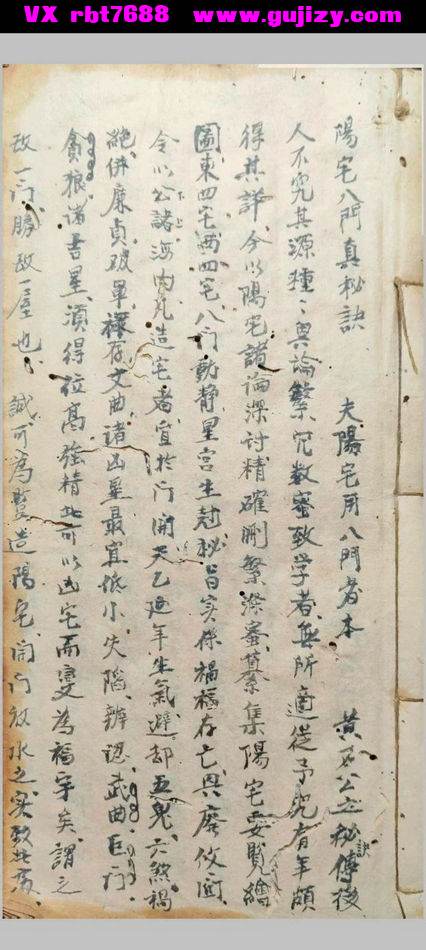 VX rbt7688 www.gujizy.com
陽宅八門真秘訣 夫陽宅用八門者本 黃石公之秘傳後訣
人不究其源種〻異論繁冗数蜜致学者無所適從予究有年頗
得其詳今以陽宅諸論深討精確刪繁深蜜纂集陽宅要覧繪
圖東四宅西四宅八门動静星宫生尅秘旨实係禍福存亡異廢攸関
令以公諸海内凡造宅者宜於门開天乙延年生氣避却五鬼六煞禍
絶併廉貞破軍禄存文曲諸凶星最宜低小失陷辨認武曲巨门
貪狼诸吉星須得位髙強精此可以凶宅而变為福宇矣謂之
故一门勝故一屋也誠可為竪造陽宅開门放水之实